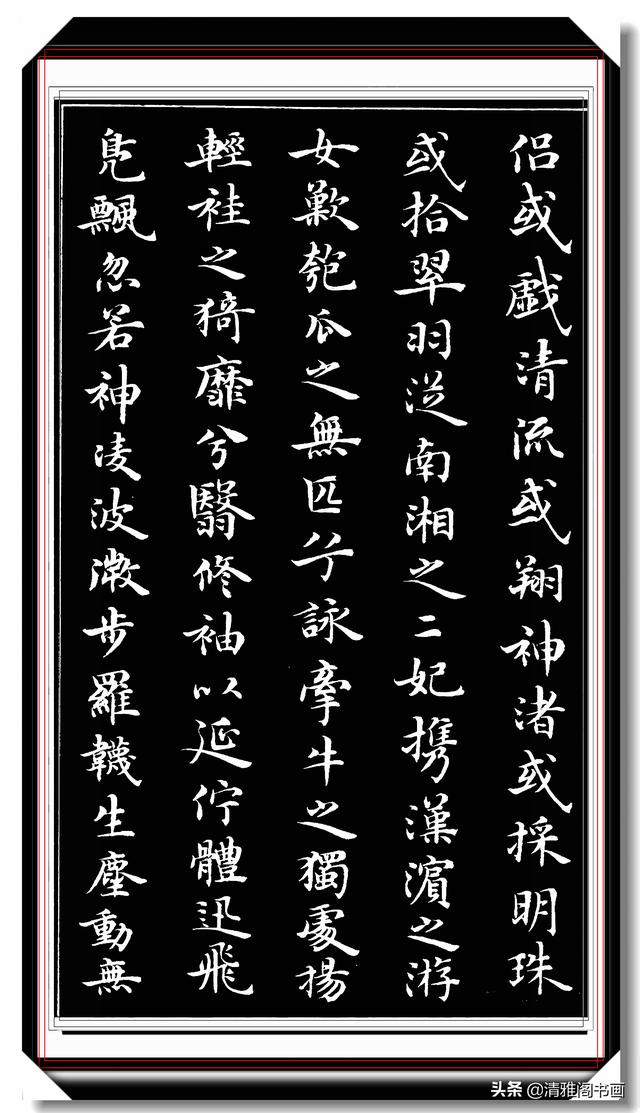 侣或戲清流或翔神渚或採明珠
或拾翠羽從南湘之二妃携漢濱之游
女歎匏瓜之無匹兮詠牽牛之獨處揚
輕袿之猗靡兮翳修袖以延佇體迅飛
鳧飄忽若神淩波微步羅韈生塵動無
头条 @清雅阁书画